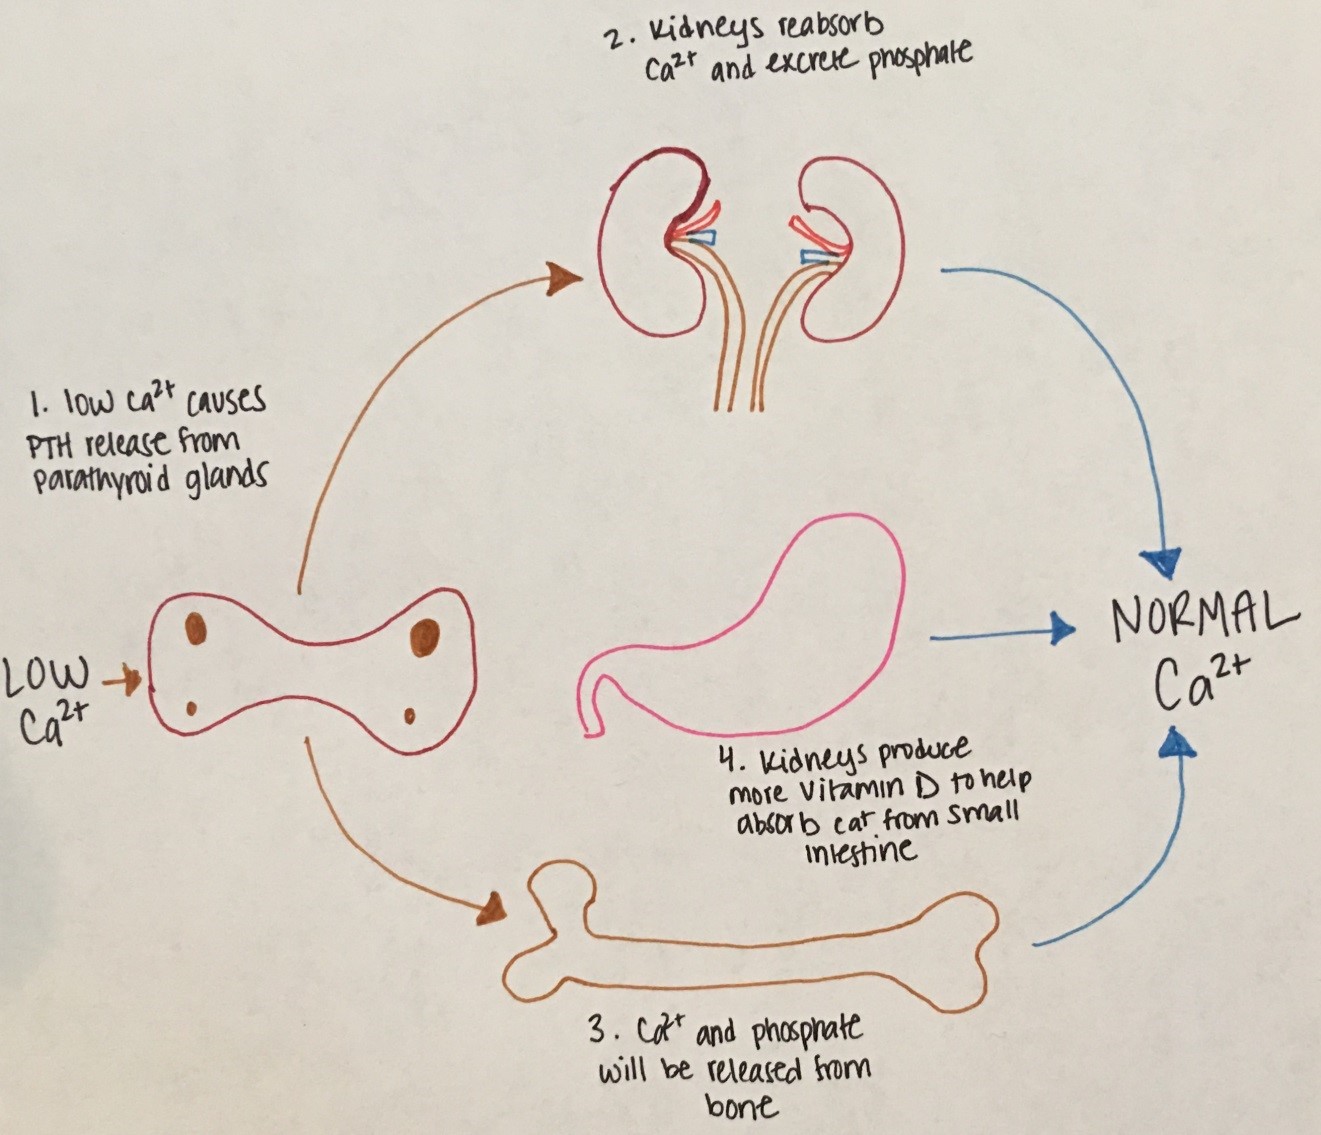 2. Kidneys reabsorb
Ca²⁺ and excrete phosphate
1. low Ca²⁺ causes
PTH release from
parathyroid glands
LOW
Ca²⁺
NORMAL
Ca²⁺
4. Kidneys produce
more Vitamin D to help
absorb cat from small
intestine
3. Ca²⁺ and phosphate
will be released from
bone